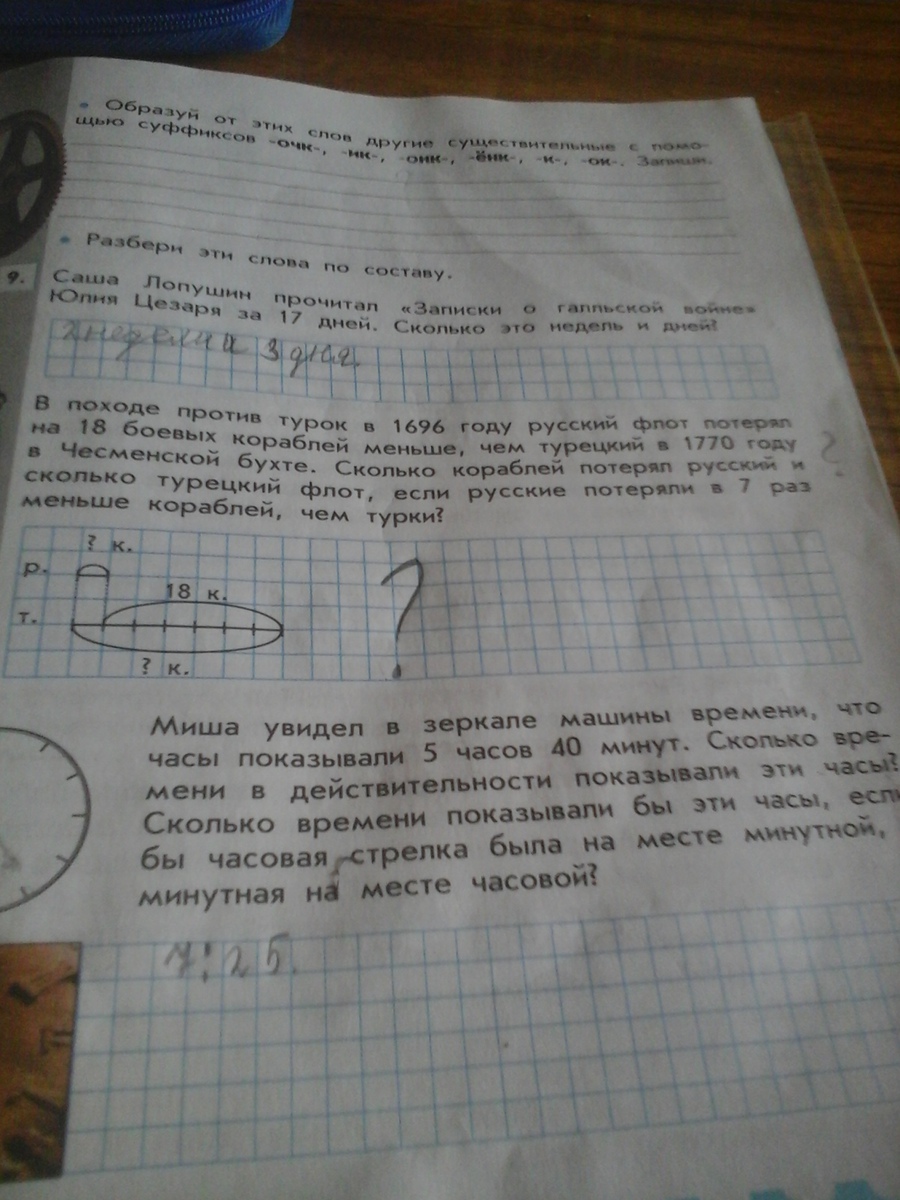 • Образуй от этих слов другие существительные с помо-
щью суффиксов -очк-, -ик-, -оик-, -ёнк-, -к-, -ок-. Запиши.
• Разбери эти слова по составу.
9. Саша Лопушин прочитал «Записки о галльской войне»
Юлия Цезаря за 17 дней. Сколько это недель и дней?
2 недели и 3 дня.
В походе против турок в 1696 году русский флот потерял
на 18 боевых кораблей меньше, чем турецкий в 1770 году
в Чесменской бухте. Сколько кораблей потерял русский и
сколько турецкий флот, если русские потеряли в 7 раз
меньше кораблей, чем турки?
?
? к.
р.
18 к.
т.
? к.
?
Миша увидел в зеркале машины времени, что
часы показывали 5 часов 40 минут. Сколько вре-
мени в действительности показывали эти часы?
Сколько времени показывали бы эти часы, если
бы часовая стрелка была на месте минутной,
минутная на месте часовой?
7:25.